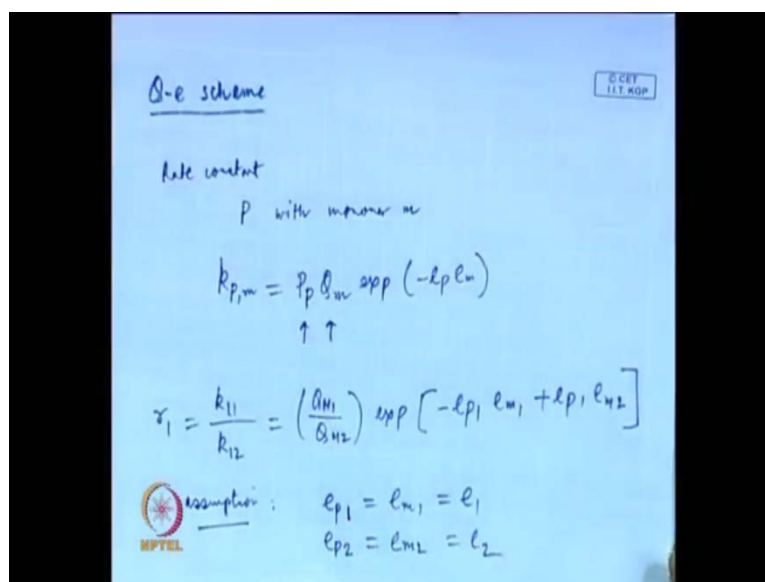 Q-e scheme
© CET
I.I.T. KGP
Rate constant
P with monomer m
k_{p,m} = P_p Q_m exp (-e_p e_m)
↑ ↑
r_1 = k_{11} / k_{12} = (Q_{M1} / Q_{M2}) exp [-e_{p1} e_{m1} + e_{p1} e_{M2}]
assumption : e_{p1} = e_{m1} = e_1
e_{p2} = e_{m2} = e_2
NPTEL